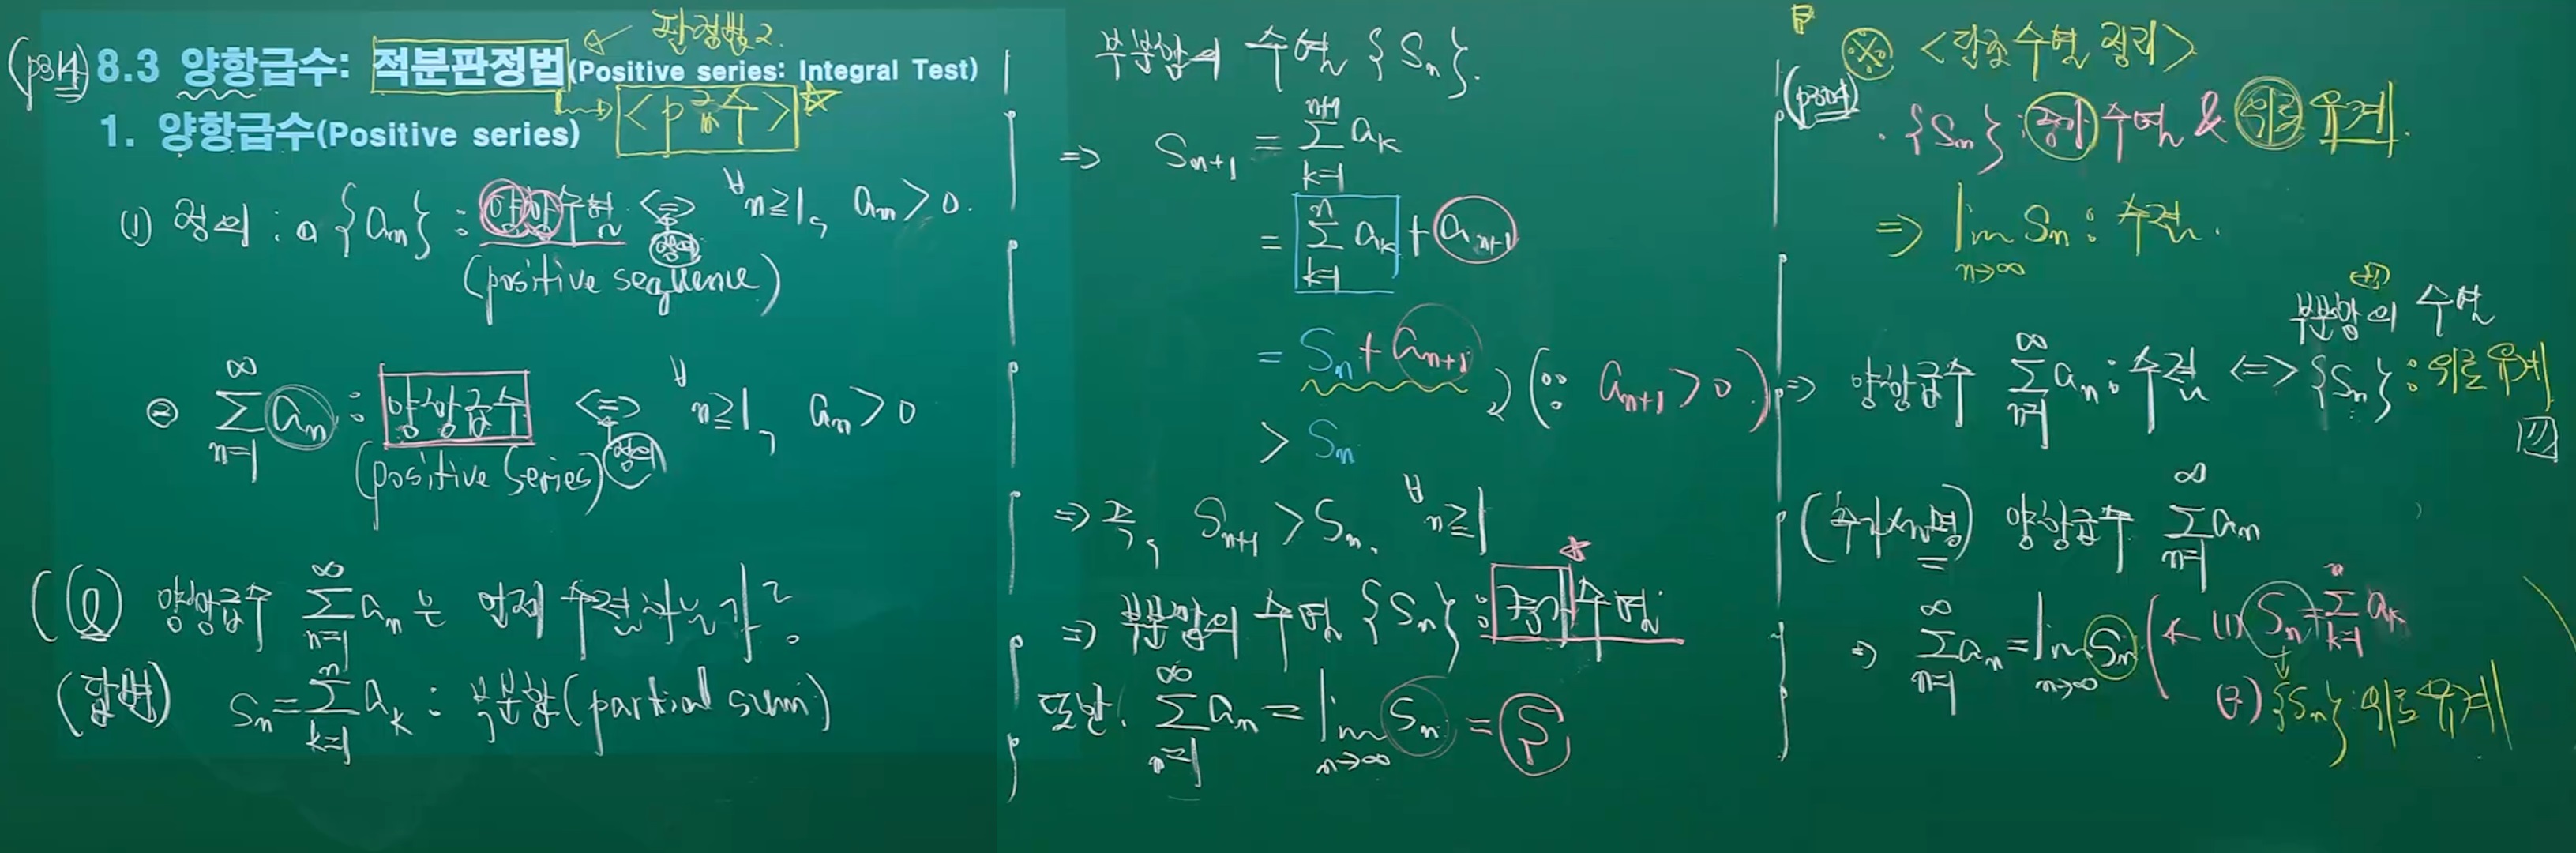 ← 판정법2.
(p314) 8.3 양항급수: 적분판정법(Positive series: Integral Test)
→ <p급수> ☆
1. 양항급수(Positive series)
(1) 정의 : ① {aₙ} : 양항수열 ⇔ ∀n≥1, aₙ>0.
정의
(positive sequence)
② ∑_{n=1}^{∞} aₙ : 양항급수 ⇔ ∀n≥1, aₙ>0
정의
(positive series)
(Q) 양항급수 ∑_{n=1}^{∞} aₙ은 언제 수렴하는가?
(답변) Sₙ=∑_{k=1}^{n} aₖ : 부분합(partial sum)
부분합의 수열 {Sₙ}.
⇒ Sₙ₊₁ = ∑_{k=1}^{n+1} aₖ
= ∑_{k=1}^{n} aₖ + aₙ₊₁
= Sₙ + aₙ₊₁
(∵ aₙ₊₁>0)
> Sₙ
⇒ 즉, Sₙ₊₁>Sₙ. ∀n≥1
⇒ 부분합의 수열 {Sₙ} : 증가수열.
또한. ∑_{n=1}^{∞} aₙ = lim_{n→∞} Sₙ = S
※ <단조수열 정리>
(p304)
· {Sₙ} : 증가수열 & 위로 유계.
⇒ lim_{n→∞} Sₙ : 수렴.
부분합의 수열
⇒ 양항급수 ∑_{n=1}^{∞} aₙ : 수렴 ⇔ {Sₙ} : 위로 유계
(추가설명) 양항급수 ∑_{n=1}^{∞} aₙ
⇒ ∑_{n=1}^{∞} aₙ = lim_{n→∞} Sₙ ( ← (1) Sₙ=∑_{k=1}^{n} aₖ
(2) {Sₙ} : 위로 유계